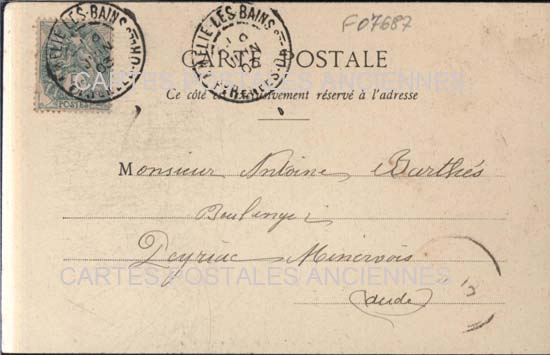 F07687
AMÉLIE-LES-BAINS
PYRÉNÉES-OR
AMÉLIE-LES-BAINS
PYRÉNÉES-OR
POSTES
CARTE POSTALE
CARTES POSTALES ANCIENNES
Ce côté est exclusivement réservé à l'adresse
Monsieur Antoine Barthés
Boulanger
Peyriac Minervois
CARTES POSTALES ANCIENNES
(Aude)